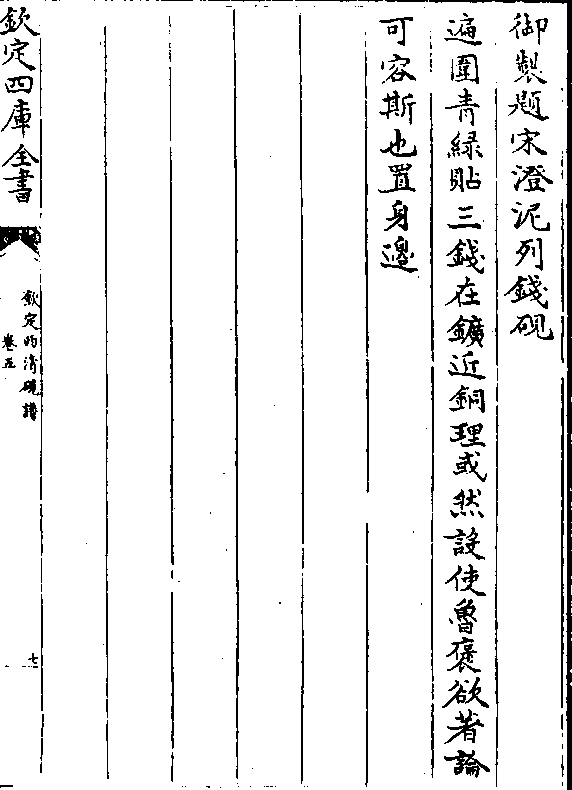 御製題宋澄泥列錢硯
遍圍青綠貼三錢在鑛近銅理或然設使魯褒欲著論
可容斯也置身邊
欽定四庫全書
欽定西清硯譜
卷五
七